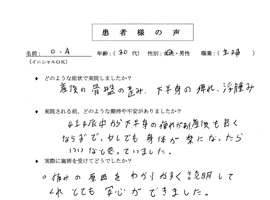 患者様の声
名前： O - A 年齢：（30代） 性別：女性・男性 職業：（主婦）
（イニシャルOK）
◆ どのような症状で来院しましたか？
産後の骨盤の歪み、下半身の痺れ、浮腫み
◆ 来院される前、どのような期待や不安がありましたか？
妊娠中から下半身の痺れが産後も良く
ならずで、少しでも身体が楽になったら
いいなと思っていました。
◆ 実際に施術を受けてどうでしたか？
痛みの原因をわかりやすく説明して
くれとても安心ができました。